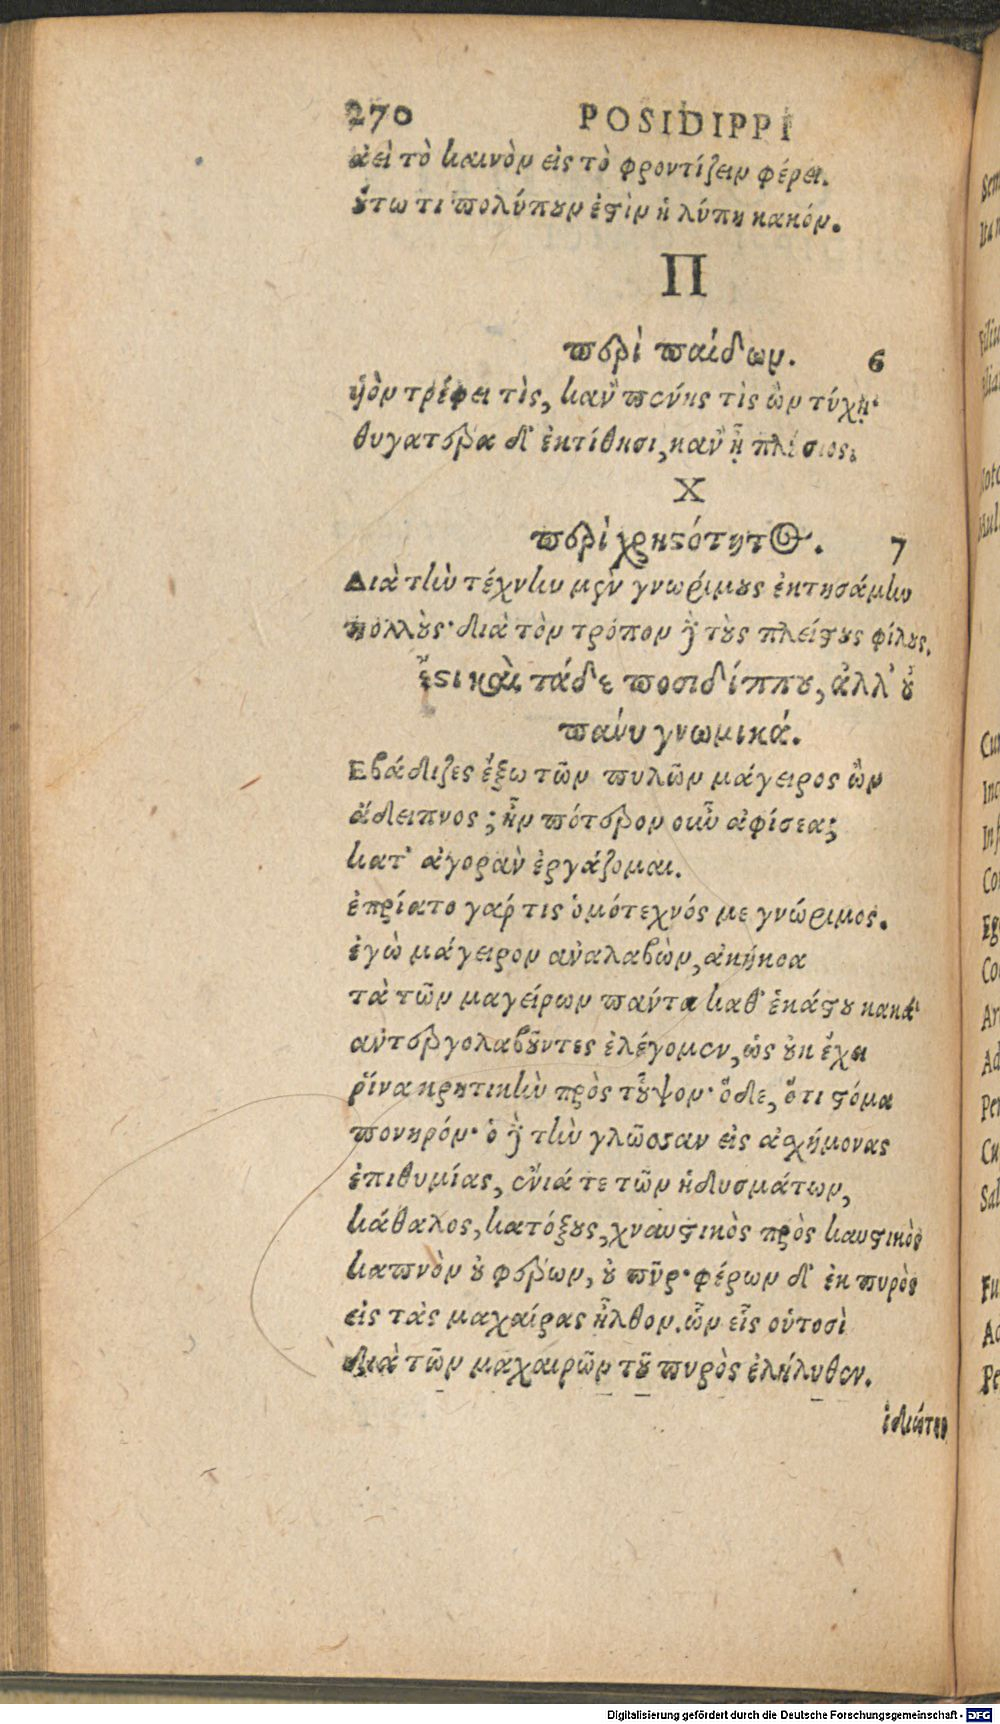 270 POSIDIPPI
ἀεὶ τὸ καινὸν εἰς τὸ φροντίζειν φέρει.
οὕτω τι πολύπουν ἐστὶν ἡ λύπη κακόν.
Π
περὶ παίδων. 6
ὑὸν τρέφει τὶς, κἂν πένης τὶς ὢν τύχῃ·
θυγατέρα δ' ἐκτίθησι, κἂν ᾖ πλούσιος.
Χ
περὶ χρηστότητος. 7
Διὰ τὴν τέχνην μὲν γνωρίμους ἐκτησάμην
πολλοὺς· διὰ τὸν τρόπον δὲ τοὺς πλείστους φίλους.
ἔστι καὶ τάδε ποσιδίππου, ἀλλ' οὐ
πάνυ γνωμικά.
Εβάδιζες ἔξω τῶν πυλῶν μάγειρος ὢν
ἄδειπνος; ἦν πότερον οὖν ἀφίσεας
κατ' ἀγορὰν ἐργάζομαι.
ἐπρίατο γάρ τις ὁμότεχνός με γνώριμος.
ἐγὼ μάγειρον ἀναλαβὼν, ἀκήκοα
τὰ τῶν μαγείρων πάντα καθ' ἑκάστου κακά·
ἀντεργολαβοῦντες ἐλέγομεν, ὡς οὐκ ἔχει
ῥῖνα κρητικὴν πρὸς τοὖψον· ὅδε, ὅτι στόμα
πονηρόν· ὁ δὲ τὴν γλῶσσαν εἰς ἀσχήμονας
ἐπιθυμίας, ἐνιά τε τῶν ἡδυσμάτων,
κάθαλος, κατόξους, χναυστικὸς πρὸς καυστικὸς
καπνὸν οὐ φέρων, οὐ πῦρ· φέρων δ' ἐκ πυρὸς
εἰς τὰς μαχαίρας ἦλθον. ὧν εἷς οὑτοσὶ
διὰ τῶν μαχαιρῶν τοῦ πυρὸς ἐλήλυθεν.
ἰδιώτης
Digitalisierung gefördert durch die Deutsche Forschungsgemeinschaft - DFG